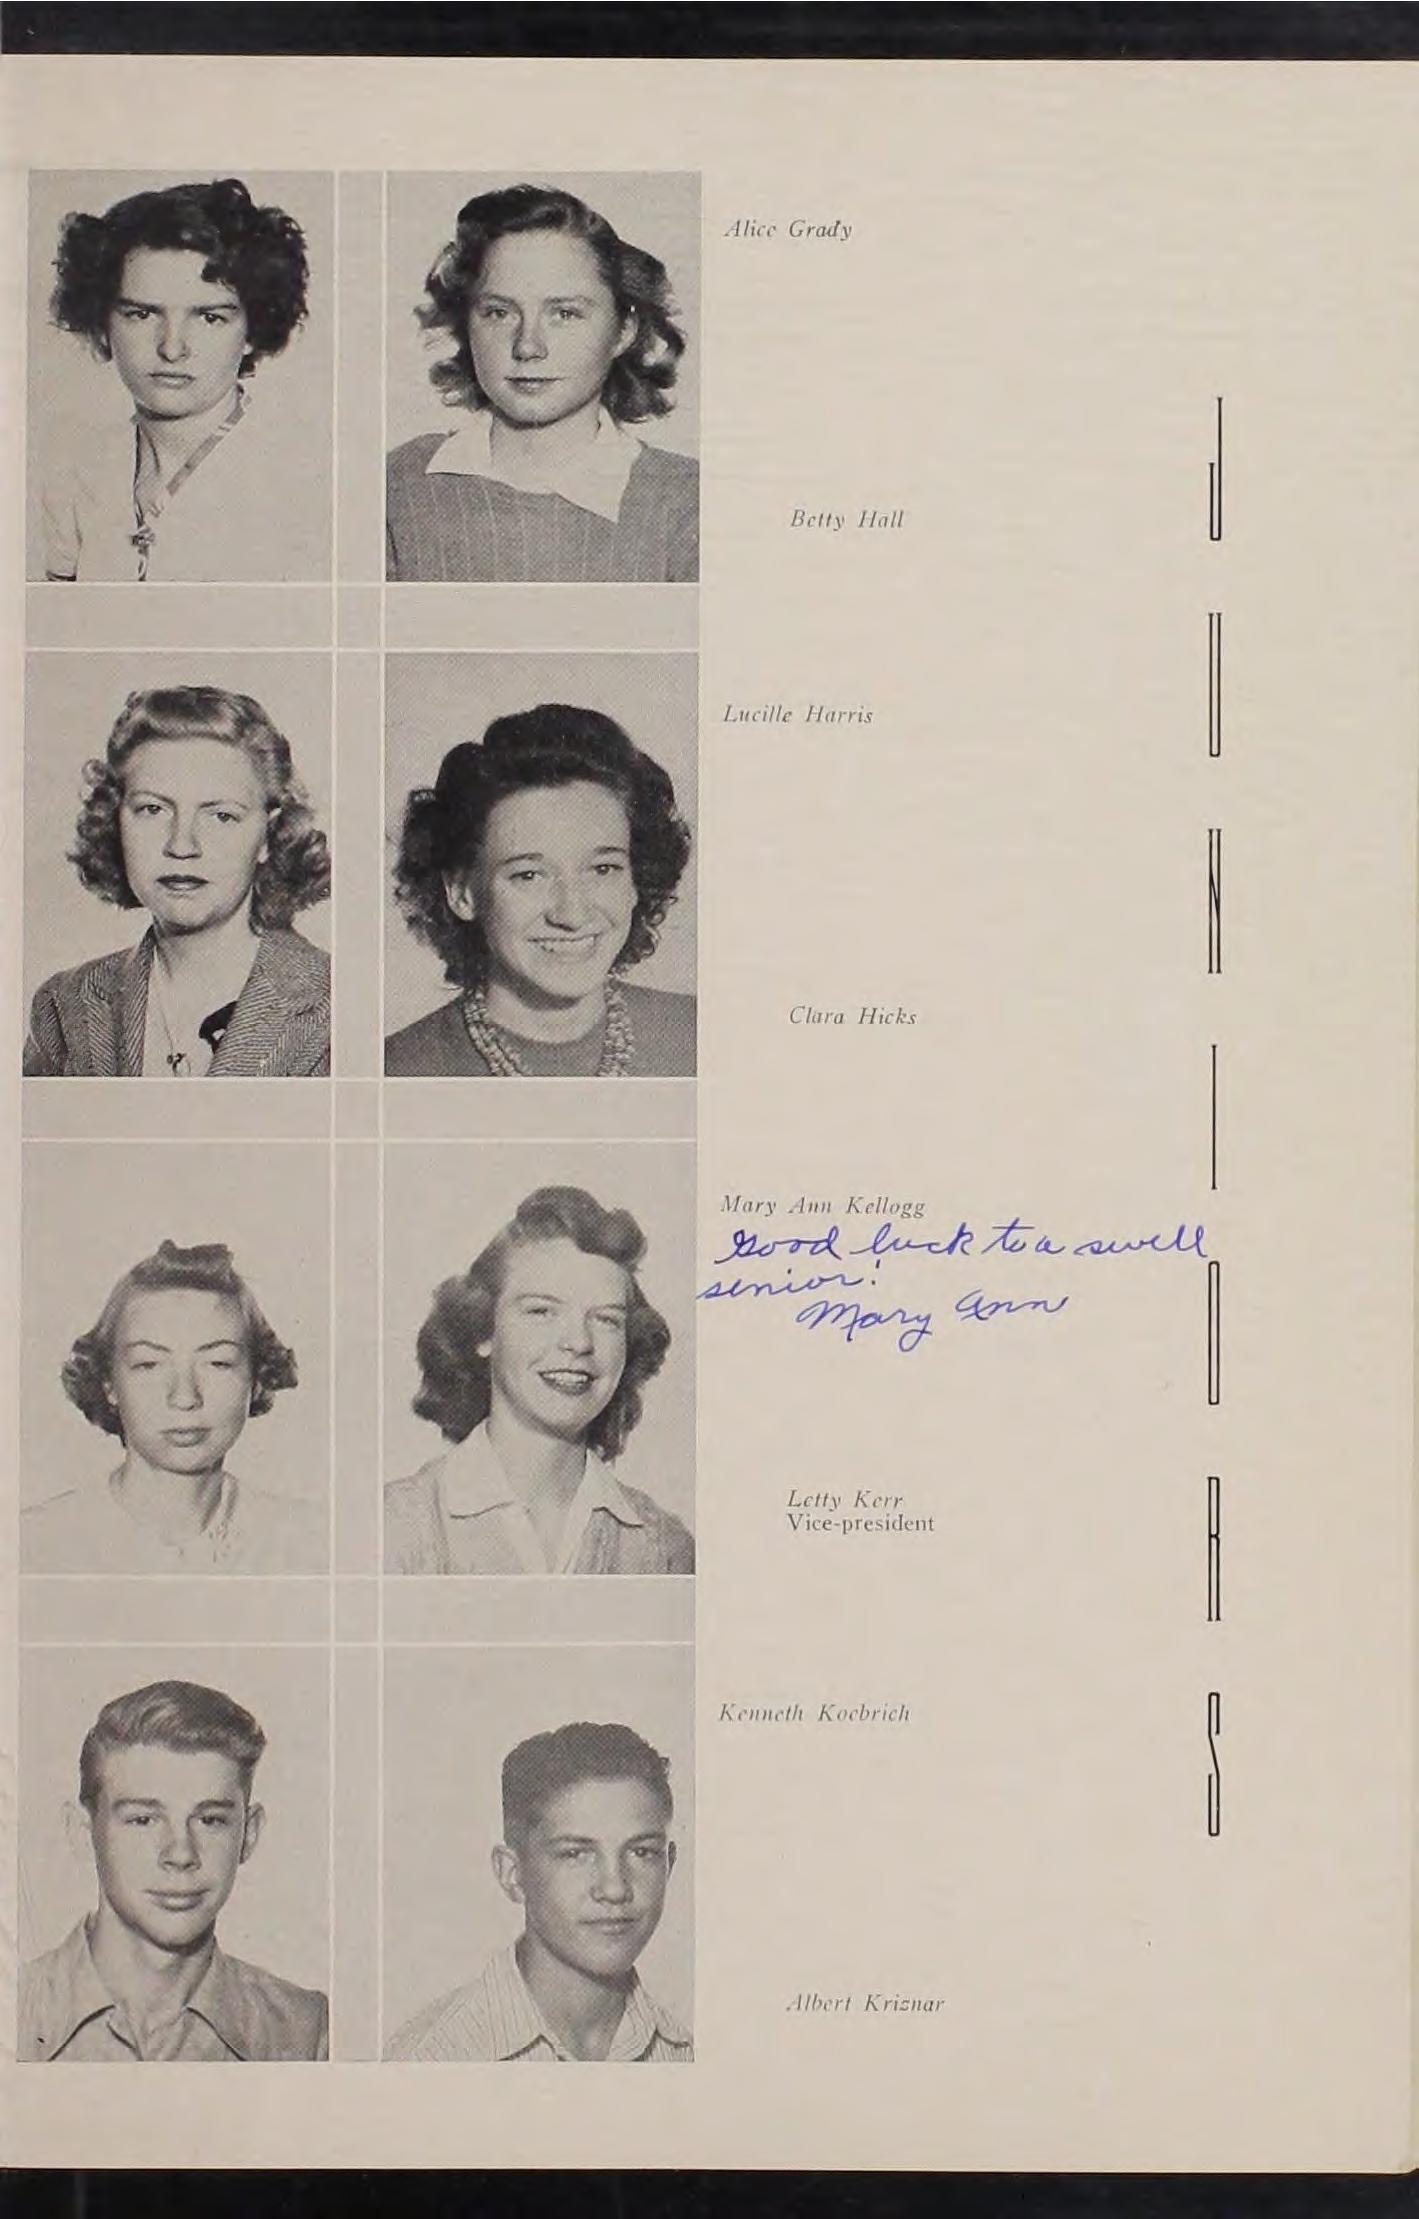 Alice Grady
Betty Hall
Lucille Harris
Clara Hicks
Mary Ann Kellogg
Good luck to a swell
senior!
Mary Ann
Letty Kerr
Vice-president
Kenneth Koebrich
Albert Kriznar
JUNIORS